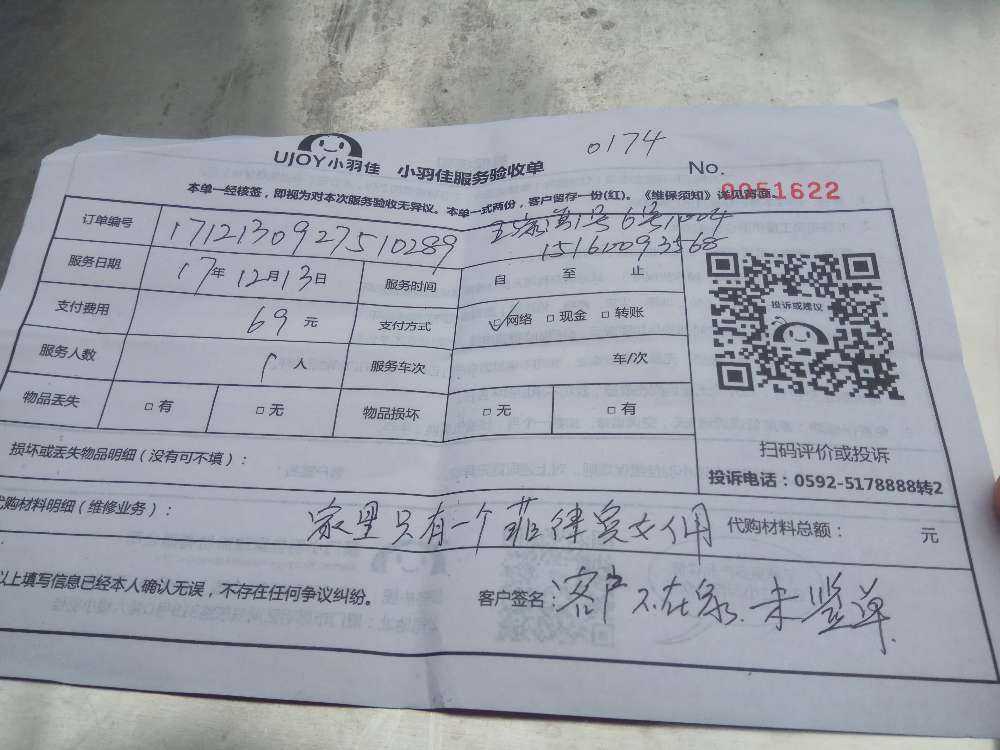 0174
UJOY小羽佳 小羽佳服务验收单
No. 0051622
本单一经核签，即视为对本次服务验收无异议。本单一式两份，客户留存一份(红)。《维保须知》详见背面。
订单编号 1712130927510289 1号6号1004
151610093568
服务日期 17年12月13日 服务时间 自 至 止
支付费用 69元 支付方式 ☑网络 □现金 □转账
服务人数 1人 服务车次 车/次
物品丢失 □有 □无 物品损坏 □无 □有
投诉或建议
扫码评价或投诉
投诉电话：0592-5178888转2
损坏或丢失物品明细（没有可不填）：
代购材料明细（维修业务）： 家里只有一个菲律宾女佣 代购材料总额： 元
以上填写信息已经本人确认无误，不存在任何争议纠纷。 客户签名：客户不在家.未签单.